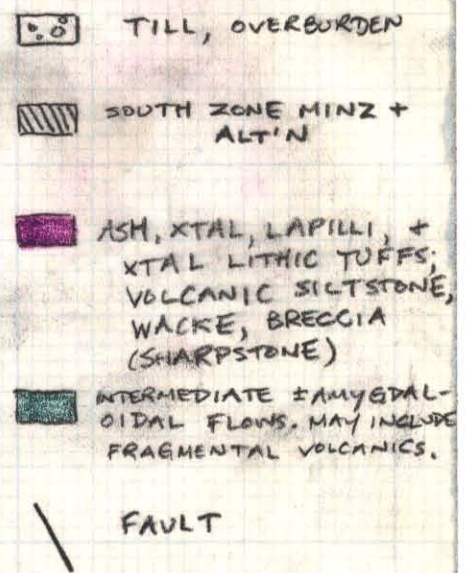 TILL, OVERBURDEN
SOUTH ZONE MINZ +
ALT'N
ASH, XTAL, LAPILLI, +
XTAL LITHIC TUFFS;
VOLCANIC SILTSTONE,
WACKE, BRECCIA
(SHARPSTONE)
INTERMEDIATE ± AMYGDAL-
OIDAL FLOWS. MAY INCLUDE
FRAGMENTAL VOLCANICS.
FAULT